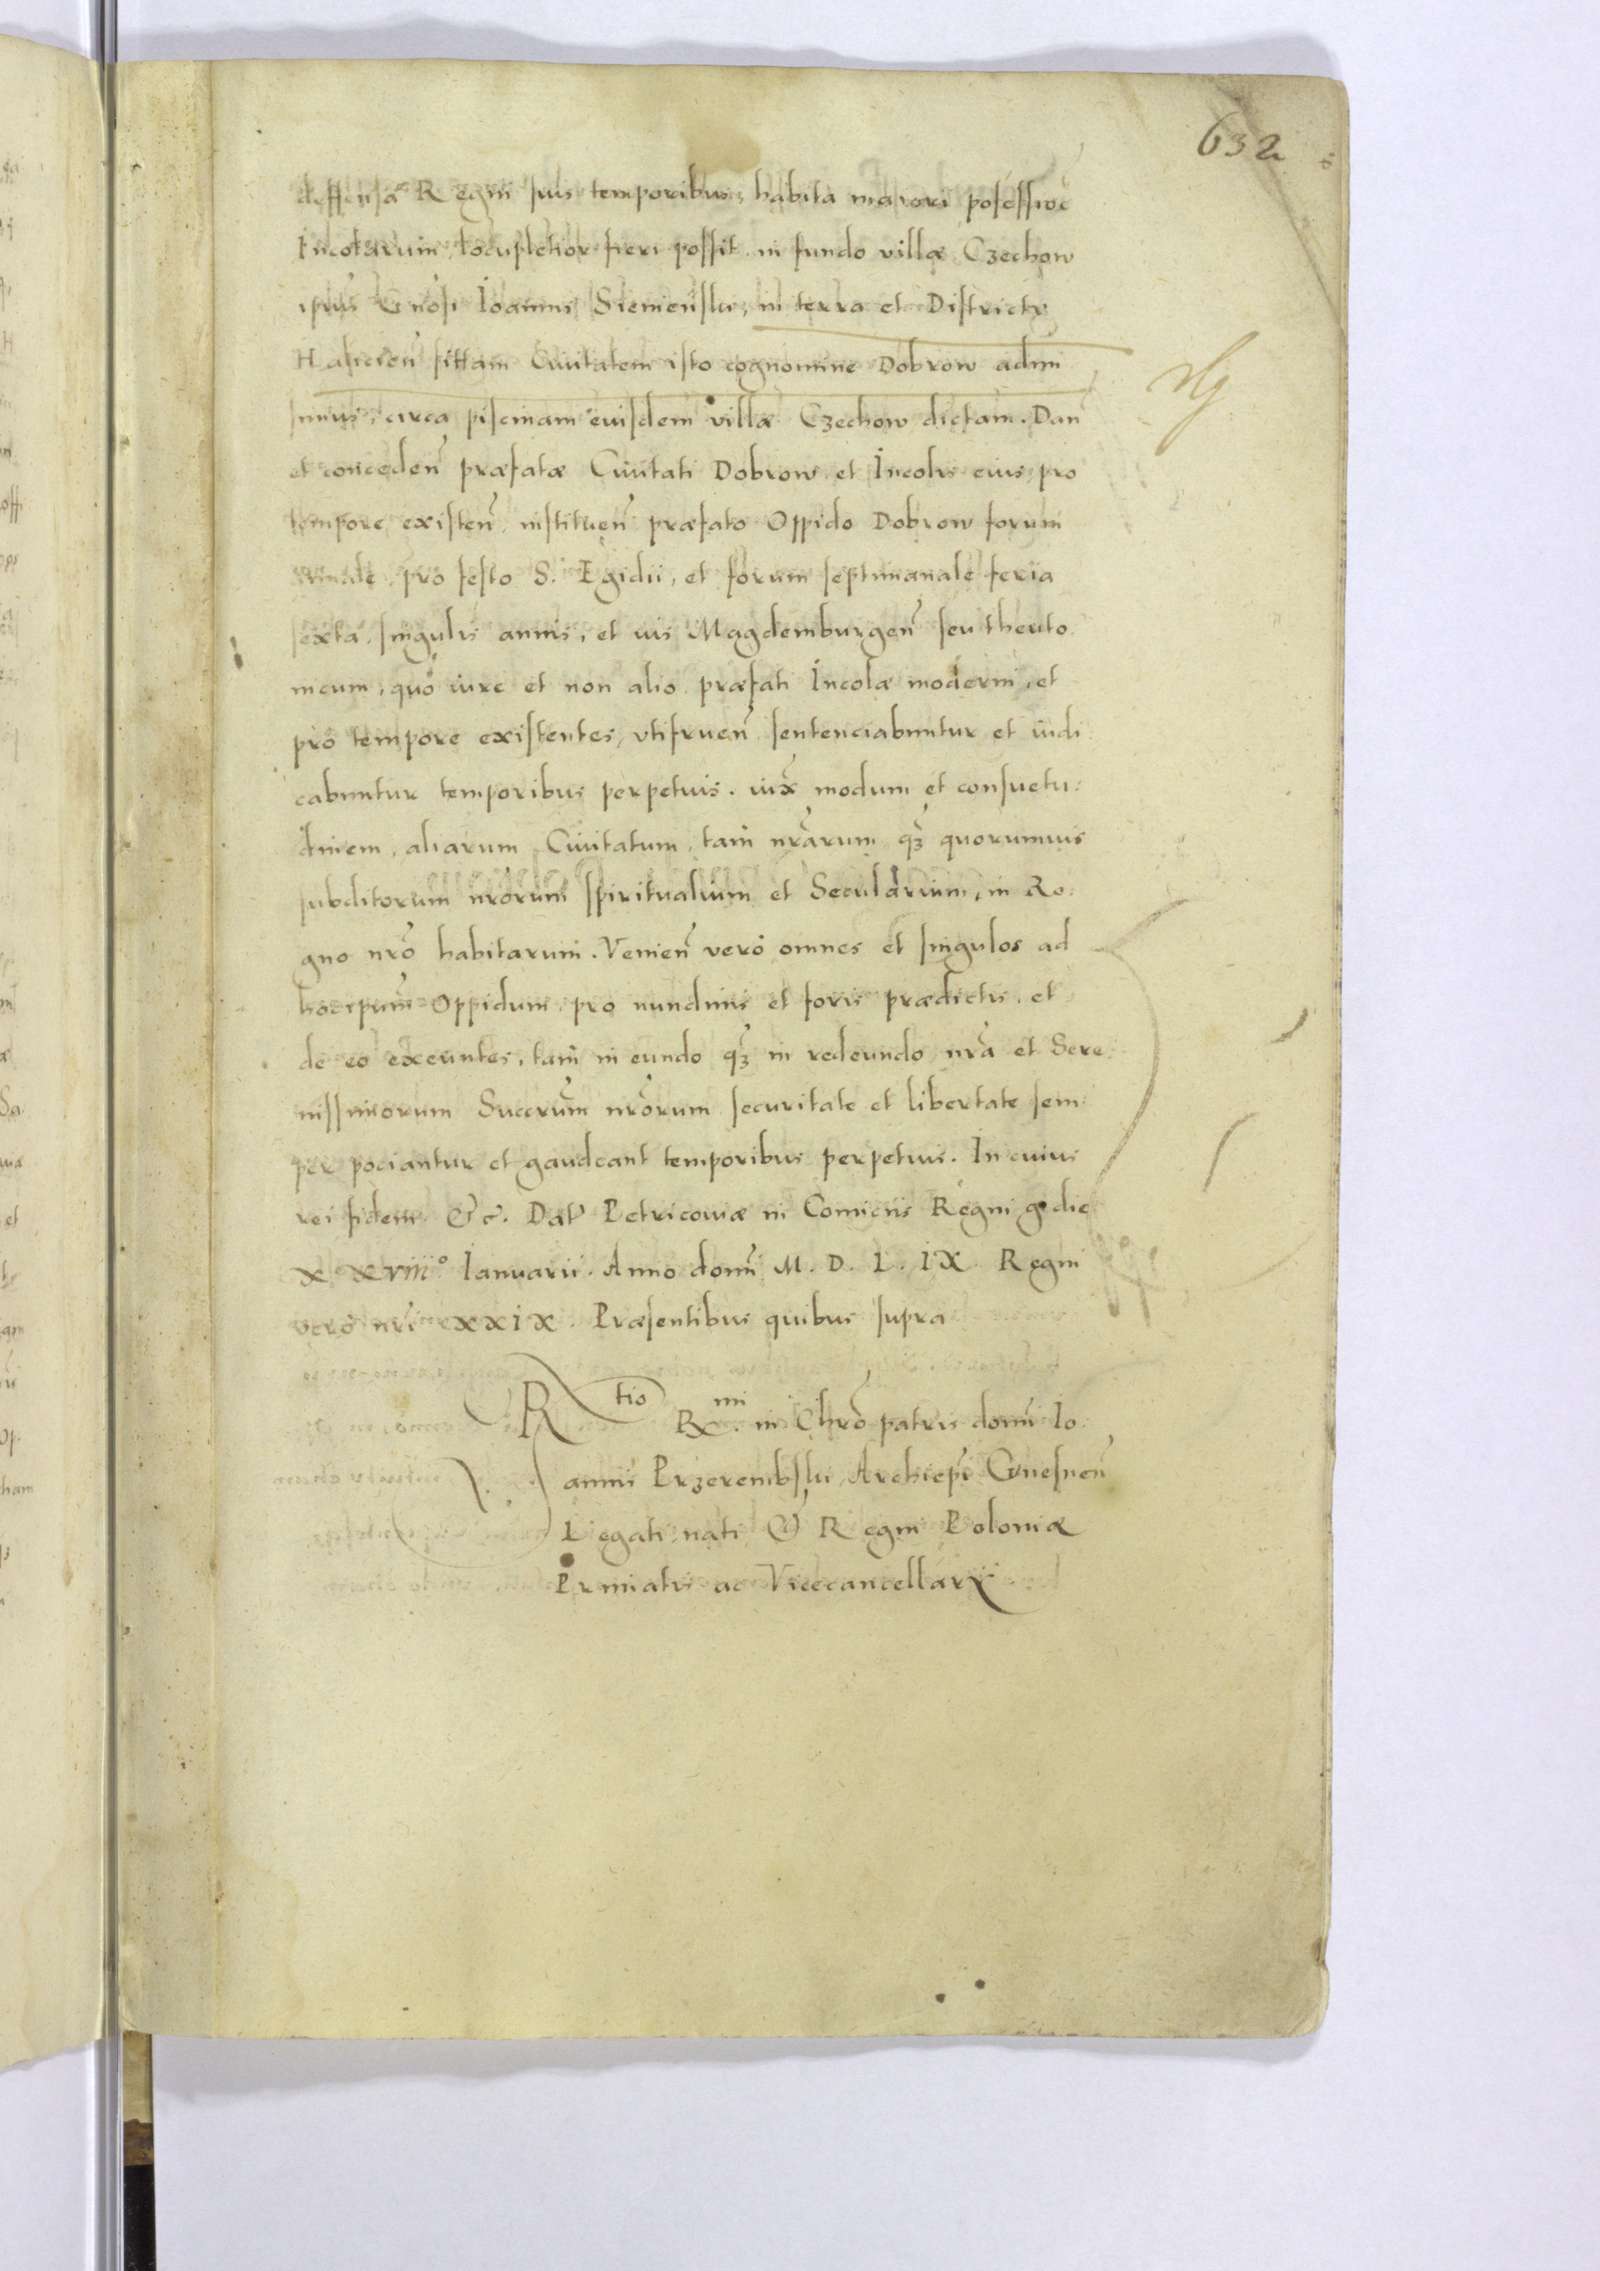 632
deffensa Regni suis temporibus, habita maiori posessioē
Incolarum, locupletior fieri possit, in fundo villæ Czechow
ipius Gnosi Ioannis Sienienslu, in terra et Districtu
Haliciēn sittam Civitatem isto cognomine Dobrow admi
simus, circa piscinam eiusdem villæ Czechow dictam. Dan̄
et conceden̄ præfatæ Civitati Dobrow et Incolis eius pro
tempore existen̄, instituen̄ præfato Oppido Dobrow forum
pro festo S. Egidii, et forum septimanale feria
sexta, singulis annis, et ius Magdemburgen̄ seu theuto
nicum, quo iure et non alio præfati Incolæ moderni, et
pro tempore existentes, utifruen̄ sentenciabuntur et iudi
cabuntur temporibus perpetuis. iux̄ modum et consuetu:
dinem, aliarum Civitatum, tam nr̄arum, qz̄ quorumvis
subditorum nr̄orum spiritualium et Secularium, in Re:
gno nr̄o habitarum. Venien̄ vero omnes et singulos ad
hoc ipūm Oppidum pro nundinis et foris prædictis, et
de eo exeuntes, tam in eundo qz̄ in redeundo, nr̄a et Sere:
nissimorum Succr̄um nr̄orum securitate et libertate sem:
per pociantur et gaudeant temporibus perpetuis. In cuius
rei fidem &c. Dat̄ Petricoviæ in Comiciis Regni g. die
XXVIII° Ianuarii. Anno domī M. D. L. IX Regni
vero nr̄i XXIX. Præsentibus quibus supra
Rtio Rx.mi in Chrō patris domī Io:
annis Przerembslu, Archiepī Gnesnen̄
Legati nati & Regni Poloniæ
Prmiatis ac Vicecancellarii